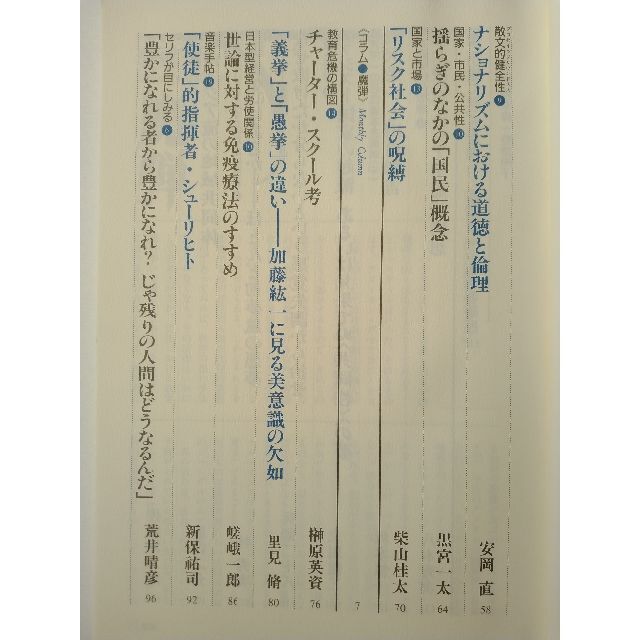 散文的健全性❾
ナショナリズムにおける道徳と倫理
安岡 直
58
国家・市民・公共性❿
揺らぎのなかの「国民」概念
黒宮一太
64
国家と市場⓭
「リスク社会」の呪縛
柴山桂太
70
《コラム●魔弾》 Monthly Column
7
教育危機の構図⓬
チャーター・スクール考
榊原英資
76
「義挙」と「愚挙」の違い――加藤紘一に見る美意識の欠如
里見 脩
80
日本型経営と労使関係❿
世論に対する免疫療法のすすめ
嵯峨一郎
86
音楽手帖
「使徒」的指揮者・シューリヒト
新保祐司
92
セリフが目にしみる❻
「豊かになれる者から豊かになれ? じゃ残りの人間はどうなるんだ」
荒井晴彦
96